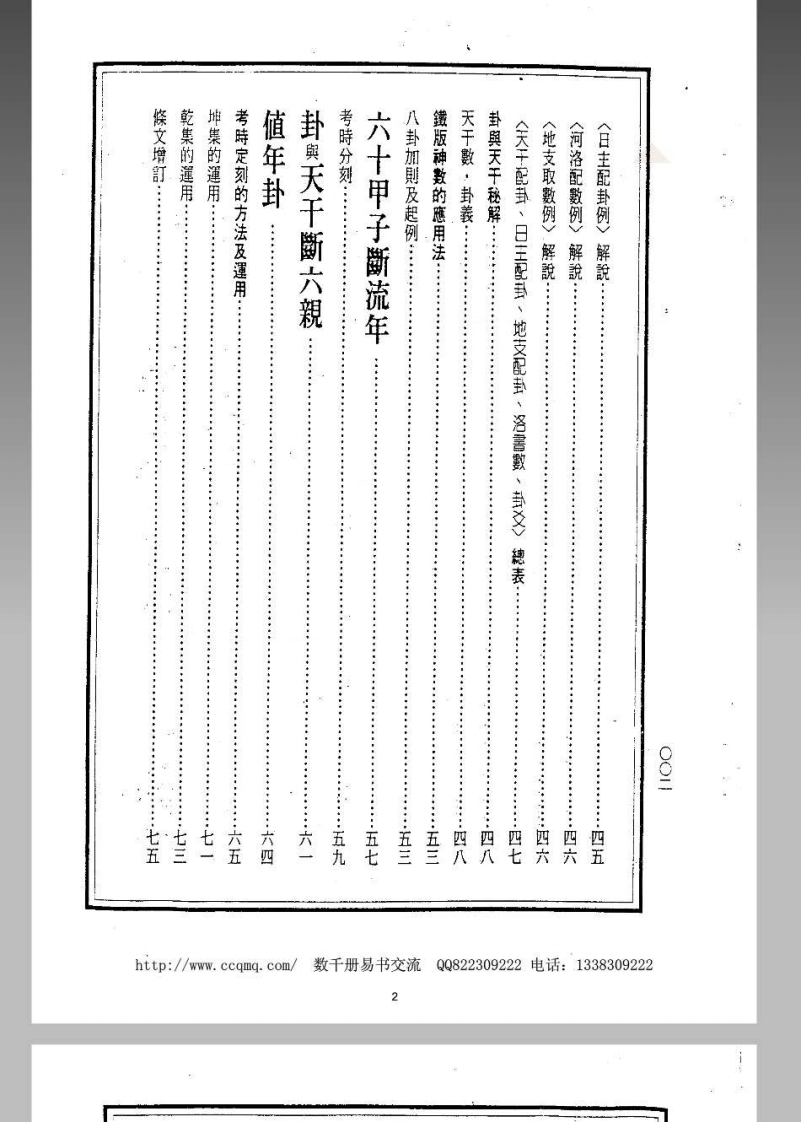 〈日主配卦例〉解說……四五
〈河洛配數例〉解說……四六
〈地支取數例〉解說……四六
〈天干配卦、日主配卦、地支配卦、洛書數、卦爻〉總表……四七
卦與天干秘解……四八
天干數・卦義……四八
鐵版神數的應用法……五三
八卦加則及起例……五三
六十甲子斷流年……五七
考時分刻……五九
卦與天干斷六親……六一
值年卦……六四
考時定刻的方法及運用……六五
坤集的運用……七一
乾集的運用……七三
條文增訂……七五
〇〇二
http://www.ccqmq.com/ 数千册易书交流 QQ822309222 电话：1338309222
2